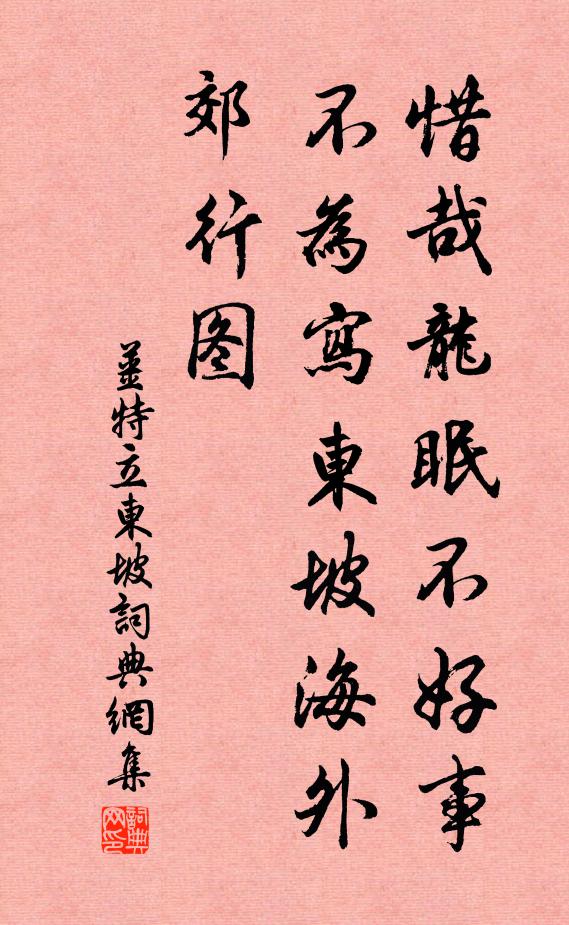 惜哉龍眠不好事
不為寫東坡海外
郊行图
姜特立東坡詞典網集
詞典网印